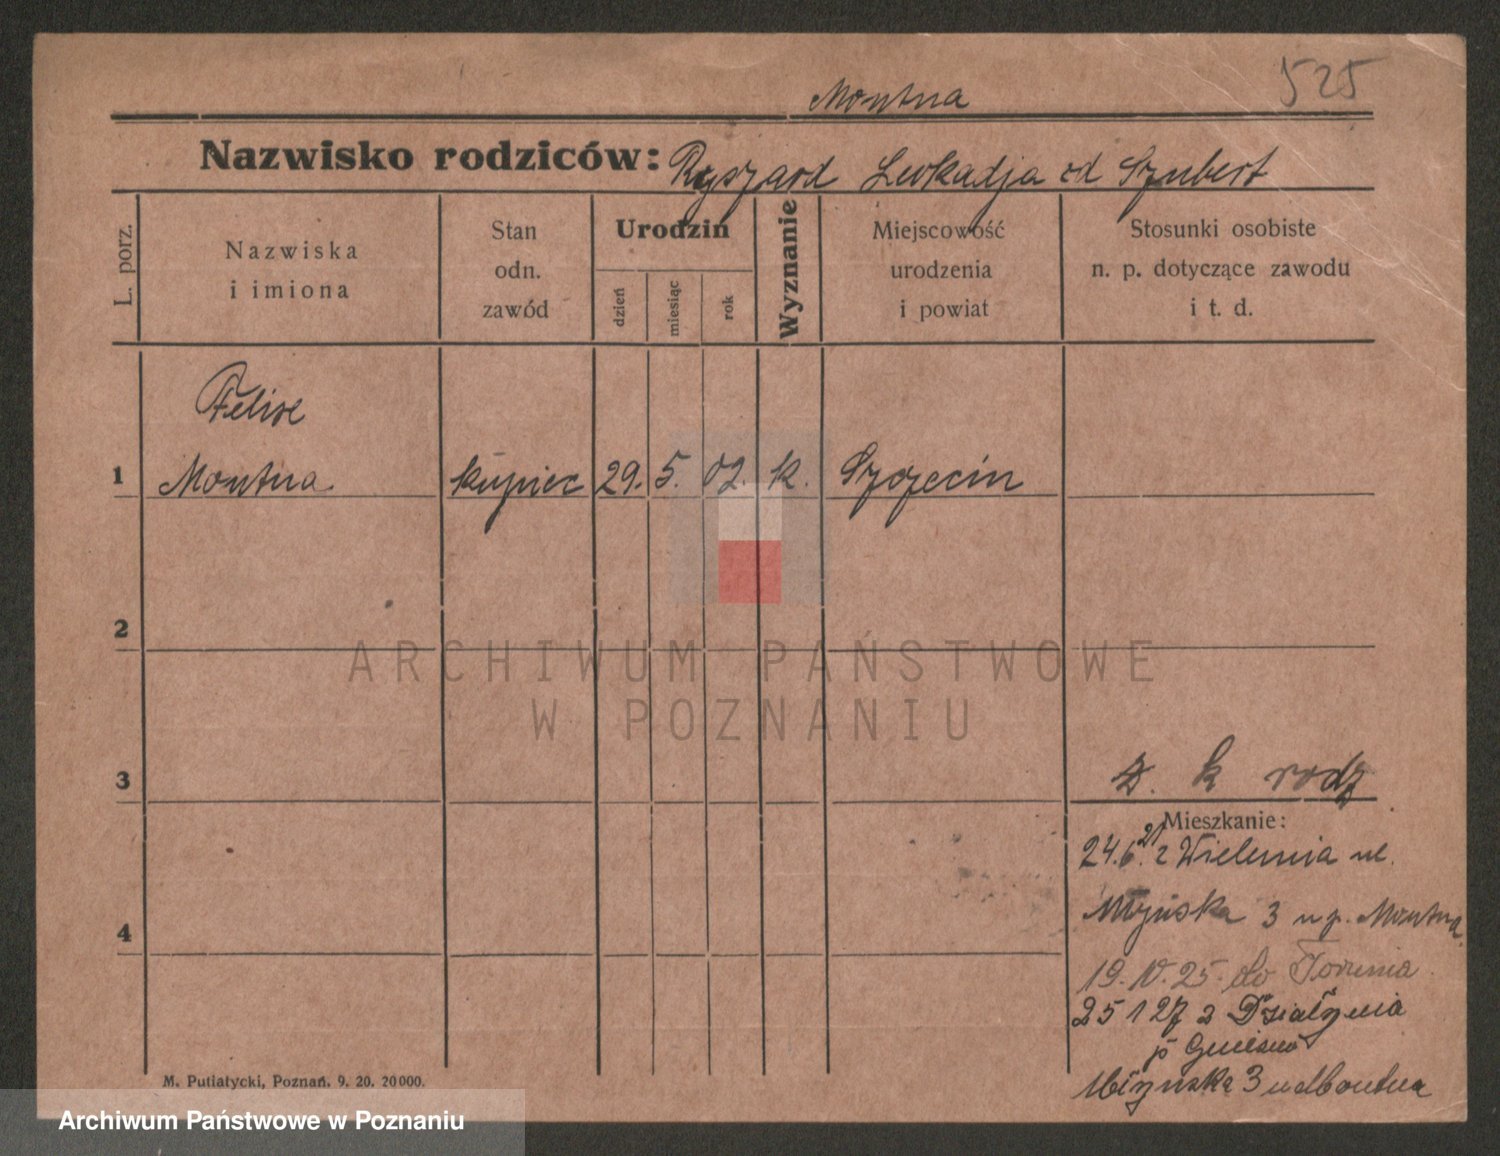 525
Montua
Nazwisko rodziców: Ryszard Leokadja zd Szubert
L. porz.
Nazwiska i imiona
Stan odn. zawód
Urodzin
dzień
miesiąc
rok
Wyznanie
Miejscowość urodzenia i powiat
Stosunki osobiste n. p. dotyczące zawodu i t. d.
Felix
1 Montua kupiec 29. 5. 02. k. Szczecin
2
ARCHIWUM PAŃSTWOWE
W POZNANIU
3
z. k rodz
Mieszkanie:
24.6.21 z Wielunia ul.
Młyńska 3 u p. Montua
4
19. IV. 25. do Torunia
25 1 27 z Działynia
p
3 u Montua
M. Putiatycki, Poznań. 9. 20. 20000.
Archiwum Państwowe w Poznaniu